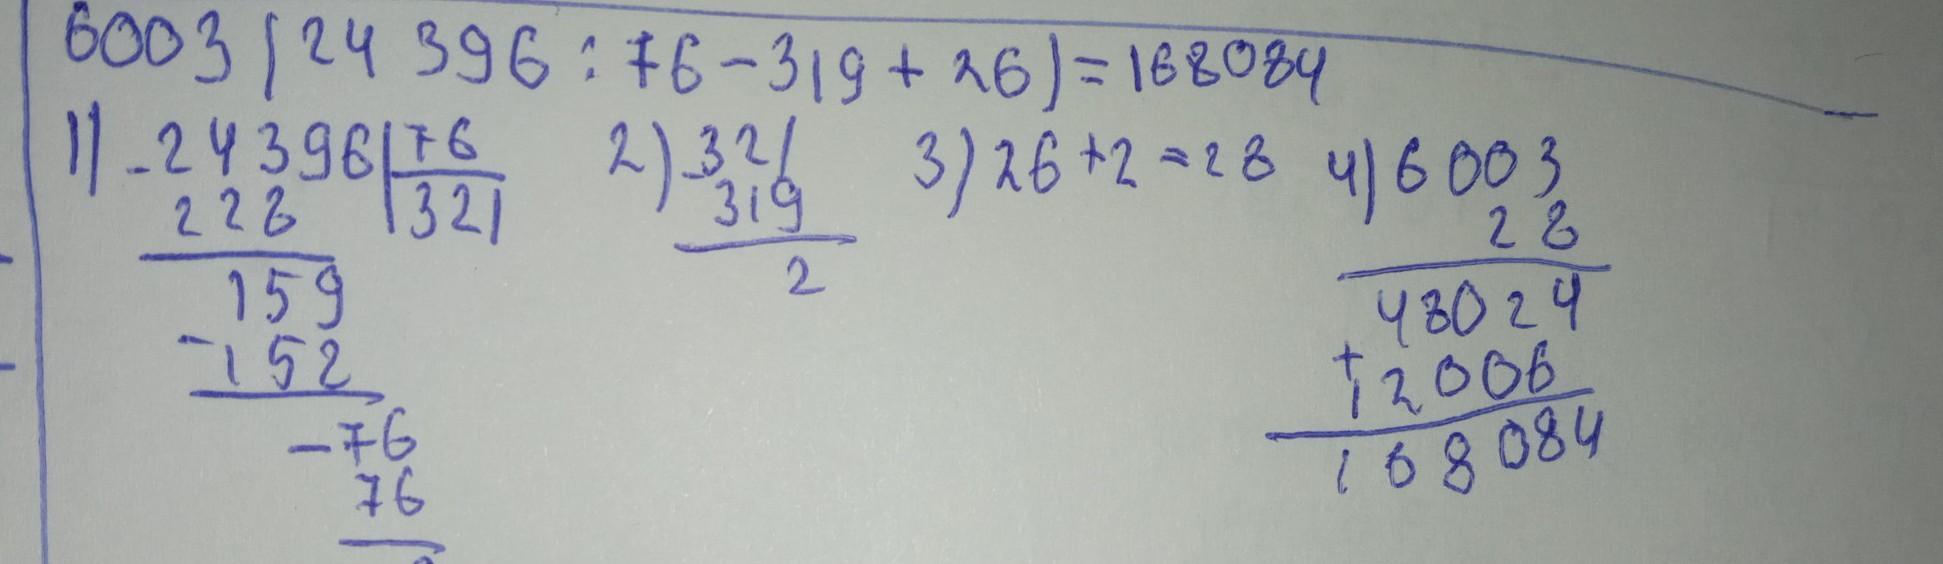 6003(24 396:76-319+26)=168084
1) -24396|76
228 |321
159
-152
-76
76
2) -321
319
2
3) 26+2=28
4) 6003
28
48024
+
12006
168084